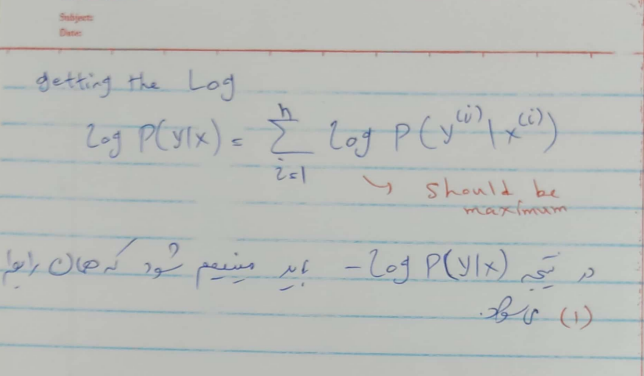 Subject:
Date:
getting the Log
log P(y|x) = ∑_{i=1}^{n} log P(y^{(i)} | x^{(i)})
↳ should be
maximum
در نتیجه -log P(y|x) باید مینیمم شود که همان رابطه
(1) می‌شود.